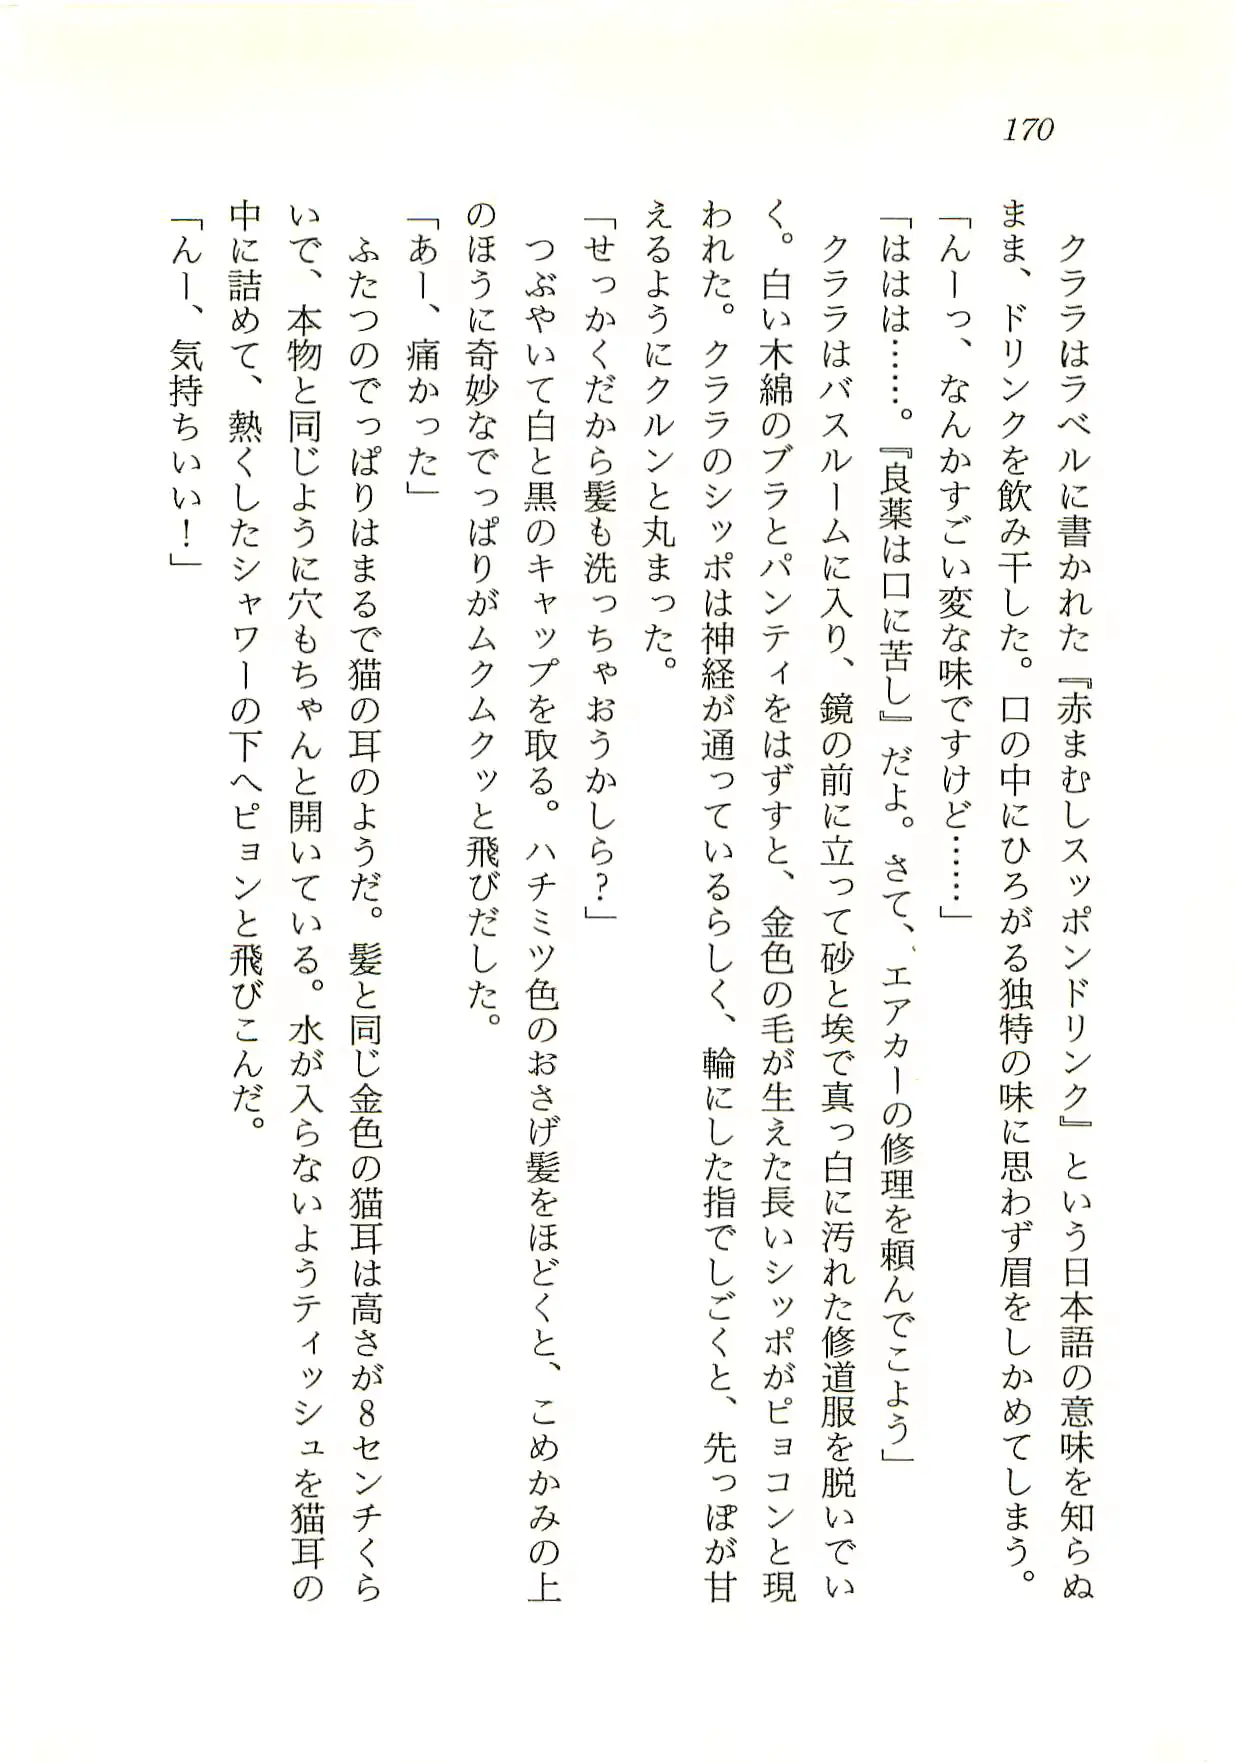 170
　クララはラベルに書かれた『赤まむしスッポンドリンク』という日本語の意味を知らぬ
まま、ドリンクを飲み干した。口の中にひろがる独特の味に思わず眉をしかめてしまう。
「んーっ、なんかすごい変な味ですけど……」
「ははは……。『良薬は口に苦し』だよ。さて、エアカーの修理を頼んでこよう」
　クララはバスルームに入り、鏡の前に立って砂と埃で真っ白に汚れた修道服を脱いでい
く。白い木綿のブラとパンティをはずすと、金色の毛が生えた長いシッポがピョコンと現
われた。クララのシッポは神経が通っているらしく、輪にした指でしごくと、先っぽが甘
えるようにクルンと丸まった。
「せっかくだから髪も洗っちゃおうかしら？」
　つぶやいて白と黒のキャップを取る。ハチミツ色のおさげ髪をほどくと、こめかみの上
のほうに奇妙なでっぱりがムクムクッと飛びだした。
「あー、痛かった」
　ふたつのでっぱりはまるで猫の耳のようだ。髪と同じ金色の猫耳は高さが８センチくら
いで、本物と同じように穴もちゃんと開いている。水が入らないようティッシュを猫耳の
中に詰めて、熱くしたシャワーの下へピョンと飛びこんだ。
「んー、気持ちいい！」